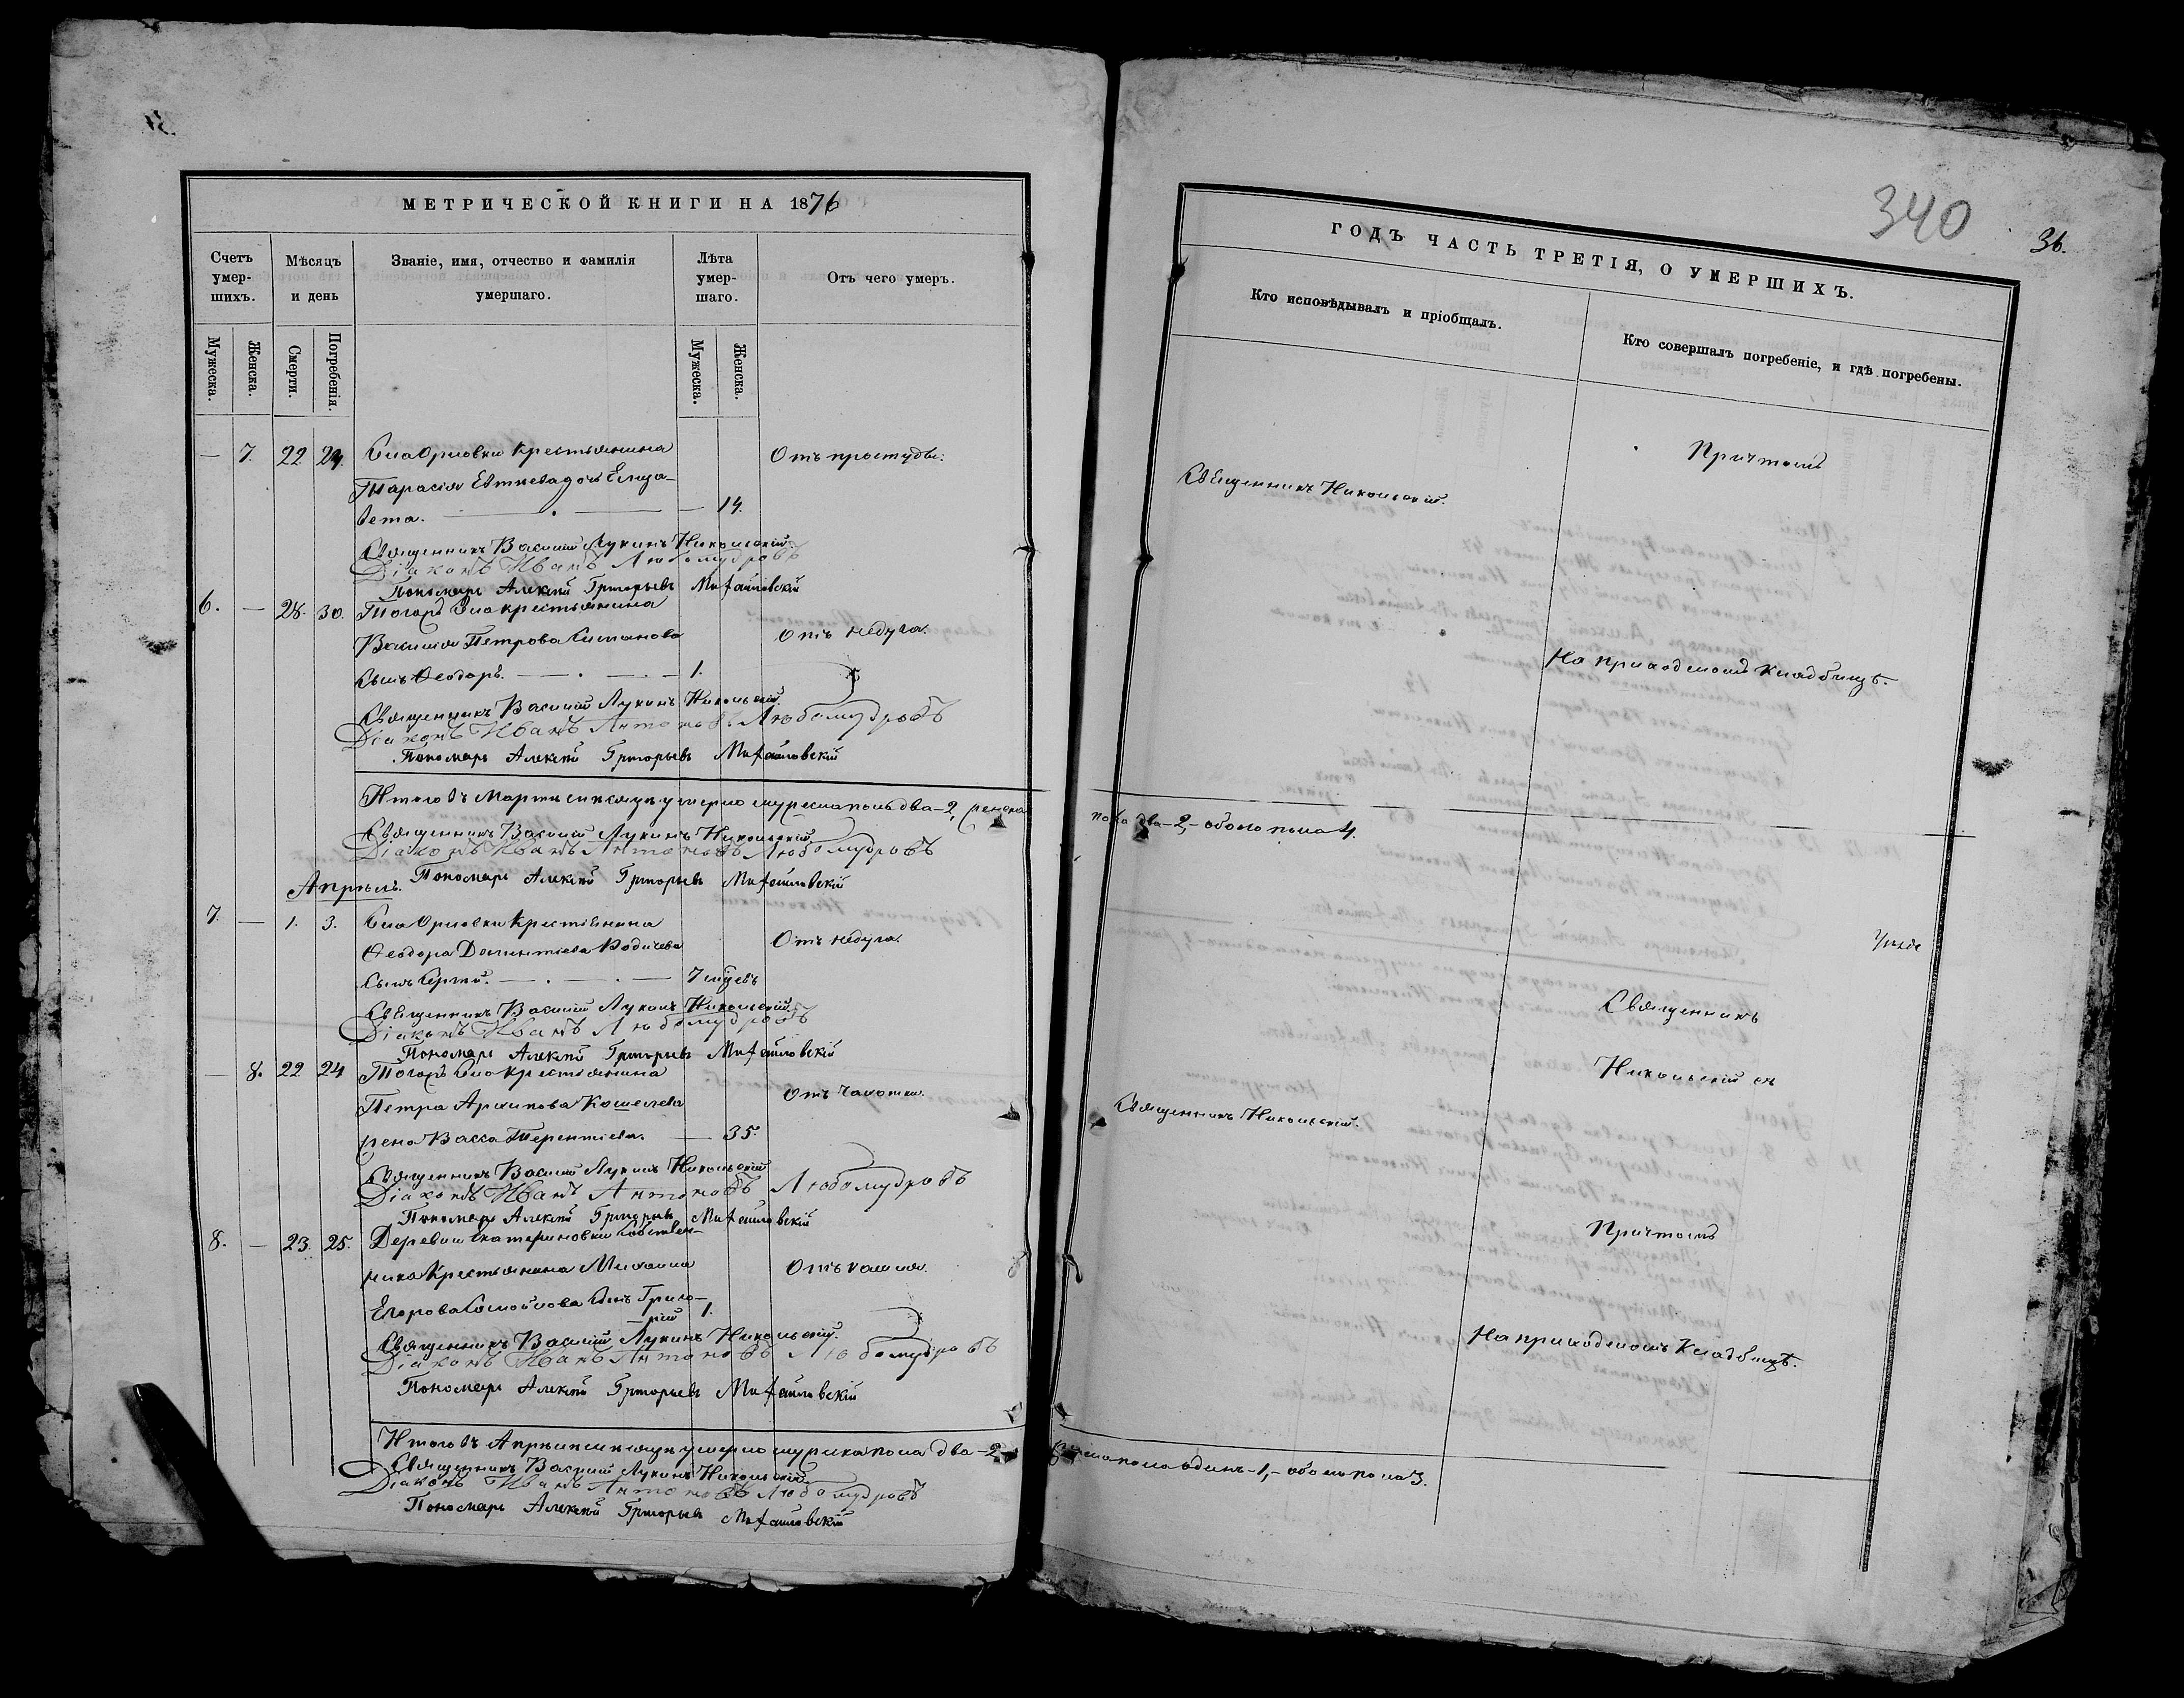 МЕТРИЧЕСКОЙ КНИГИ НА 1876
Счетъ умер-шихъ.
Мѣсяцъ и день
Званіе, имя, отчество и фамилія умершаго.
Лѣта умер-шаго.
Отъ чего умеръ.
Мужеска.
Женска.
Смерти.
Погребенія.
Мужеска.
Женска.
— 7. 22 24. Села Орловки крестьянина Отъ простуды.
Тарасія дочь Елиза-
вета. — 14.
Священникъ Василій Лукинъ Никольскій.
Діаконъ Иванъ Любомудровъ
Пономарь Алексѣй Григорьевъ Михайловскій
6. — 28. 30. Тогожъ Села крестьянина
Василія Петрова Отъ недуга.
Сынъ Ѳеодоръ. — 1.
Священникъ Василій Лукинъ Никольскій.
Діаконъ Иванъ Антоновъ Любомудровъ
Пономарь Алексѣй Григорьевъ Михайловскій
Итого въ Мартѣ мѣсяцѣ умерло мужеска полъ два-2, женска
Священникъ Василій Лукинъ Никольскій.
Діаконъ Иванъ Антоновъ Любомудровъ
Пономарь Алексѣй Григорьевъ Михайловскій
Апрѣль.
7. — 1. 3. Села Орловки Крестьянина
Ѳеодора Родичева Отъ недуга.
Сынъ Сергѣй. — 7
Священникъ Василій Лукинъ Никольскій.
Діаконъ Иванъ Любомудровъ
Пономарь Алексѣй Григорьевъ Михайловскій
— 8. 22 24 Тогожъ Села крестьянина
Петра Архипова Кошелева Отъ чахотки.
жена Васса Терентіева. — 35.
Священникъ Василій Лукинъ Никольскій
Діаконъ Иванъ Антоновъ Любомудровъ
Пономарь Алексѣй Григорьевъ Михайловскій
8. — 23. 25. Деревни Екатериновки Собствен-
ника Крестьянина Михаила Отъ кашля.
Егорова Самойлова Сынъ Григо-
рій 1.
Священникъ Василій Лукинъ Никольскій.
Діаконъ Иванъ Антоновъ Любомудровъ
Пономарь Алексѣй Григорьевъ Михайловскій
Итого въ Апрѣлѣ мѣсяцѣ умерло мужска пола два-2
Священникъ Василій Лукинъ Никольскій.
Діаконъ Иванъ Антоновъ Любомудровъ
Пономарь Алексѣй Григорьевъ Михайловскій
340
36.
ГОДЪ ЧАСТЬ ТРЕТІЯ, О УМЕРШИХЪ.
Кто исповѣдывалъ и пріобщалъ.
Кто совершалъ погребеніе, и гдѣ погребены.
Причтомъ
Священникъ Никольскій.
На приходскомъ кладбищѣ.
пола два-2,-обоего пола 4.
Священникъ
Никольскій съ
Священникъ Никольскій.
Причтомъ
На приходскомъ Кладбищѣ.
женска пола одинъ-1,-обоего пола 3.